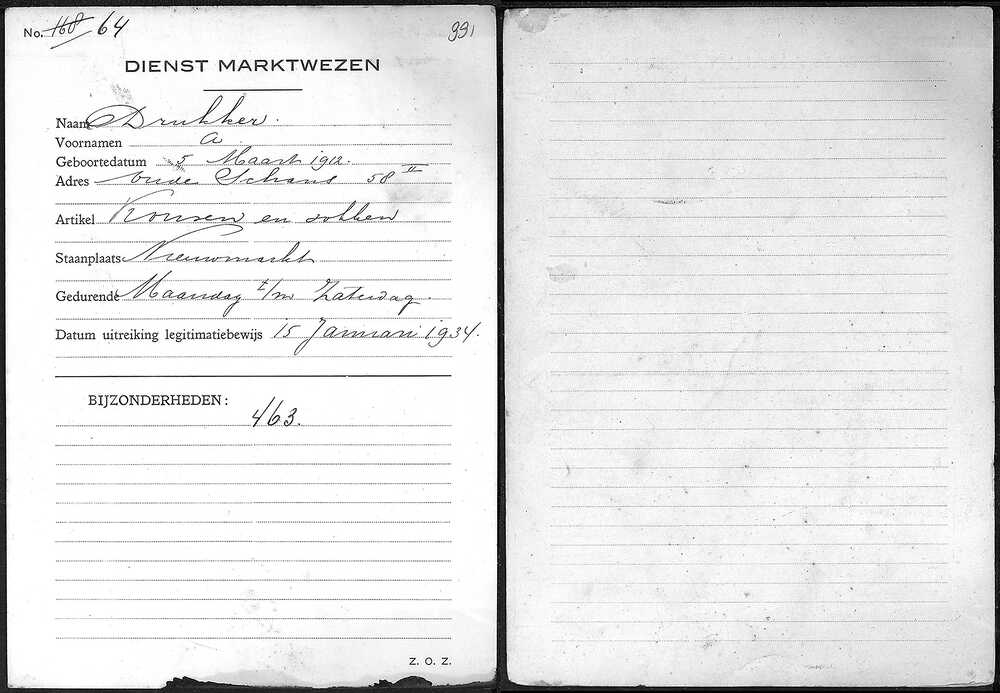 No. 168 64 991
DIENST MARKTWEZEN
Naam Drukker.
Voornamen A
Geboortedatum 5 Maart 1912.
Adres Oude Schans 58 II
Artikel Kousen en sokken
Staanplaats Nieuwmarkt
Gedurende Maandag t/m Zaterdag.
Datum uitreiking legitimatiebewijs 15 Januari 1934.
BIJZONDERHEDEN:
463.
Z. O. Z.